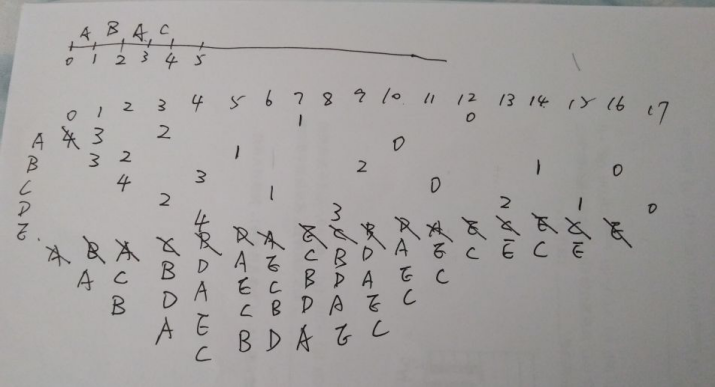 A B A C
0 1 2 3 4 5
0 1 2 3 4 5 6 7 8 9 10 11 12 13 14 15 16 17
1 0
A 4 3 2 0
B 3 2 1
C 4 3 2 1 0
D 2 1 0
E 4 3 2 1 0
A B A C B D A E C B D A E C E C E
A C B D A E C B D A E C E C E
B D A E C B D A E C
A E C B D A E C
C B D A E C